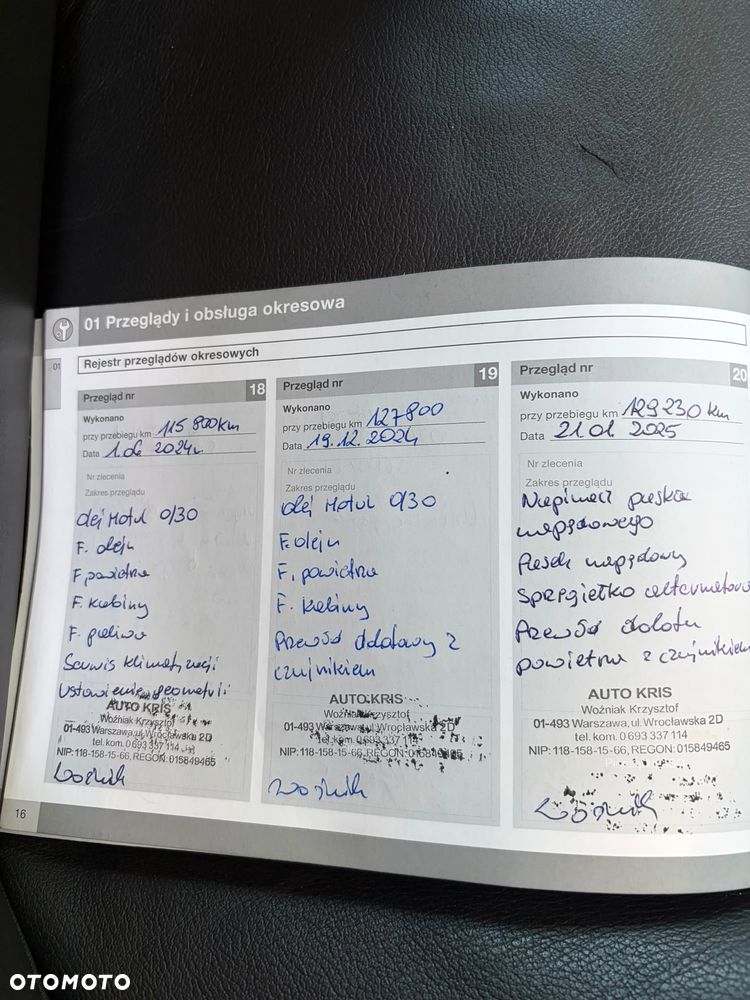 01 Przeglądy i obsługa okresowa
01
Rejestr przeglądów okresowych
Przegląd nr 18
Wykonano
przy przebiegu km 115 800 km
Data 1.02 2024r.
Nr zlecenia
Zakres przeglądu
olej Motul 0/30
F. oleju
F. powietrza
F. kabiny
F. paliwa
Serwis klimatyzacji
Ustawienie geometrii
AUTO KRIS
Woźniak Krzysztof
01-493 Warszawa, ul. Wrocławska 2D
tel. kom. 0 693 337 114
NIP: 118-158-15-66, REGON: 015849465
Przegląd nr 19
Wykonano
przy przebiegu km 127800
Data 19.12.2024
Nr zlecenia
Zakres przeglądu
olej Motul 0/30
F. oleju
F. powietrza
F. kabiny
Przewód dolotowy z
czujnikiem
AUTO KRIS
Woźniak Krzysztof
01-493 Warszawa, ul. Wrocławska 2D
tel. kom. 0 693 337 114
NIP: 118-158-15-66, REGON: 015849465
Przegląd nr 20
Wykonano
przy przebiegu km 129 230 km
Data 21.01.2025
Nr zlecenia
Zakres przeglądu
Napinacz paska
napędowego
Pasek napędowy
Sprzęgiełko alternatora
Przewód dolotu
powietrza z czujnikiem
AUTO KRIS
Woźniak Krzysztof
01-493 Warszawa, ul. Wrocławska 2D
tel. kom. 0 693 337 114
NIP: 118-158-15-66, REGON: 015849465
16
OTOMOTO